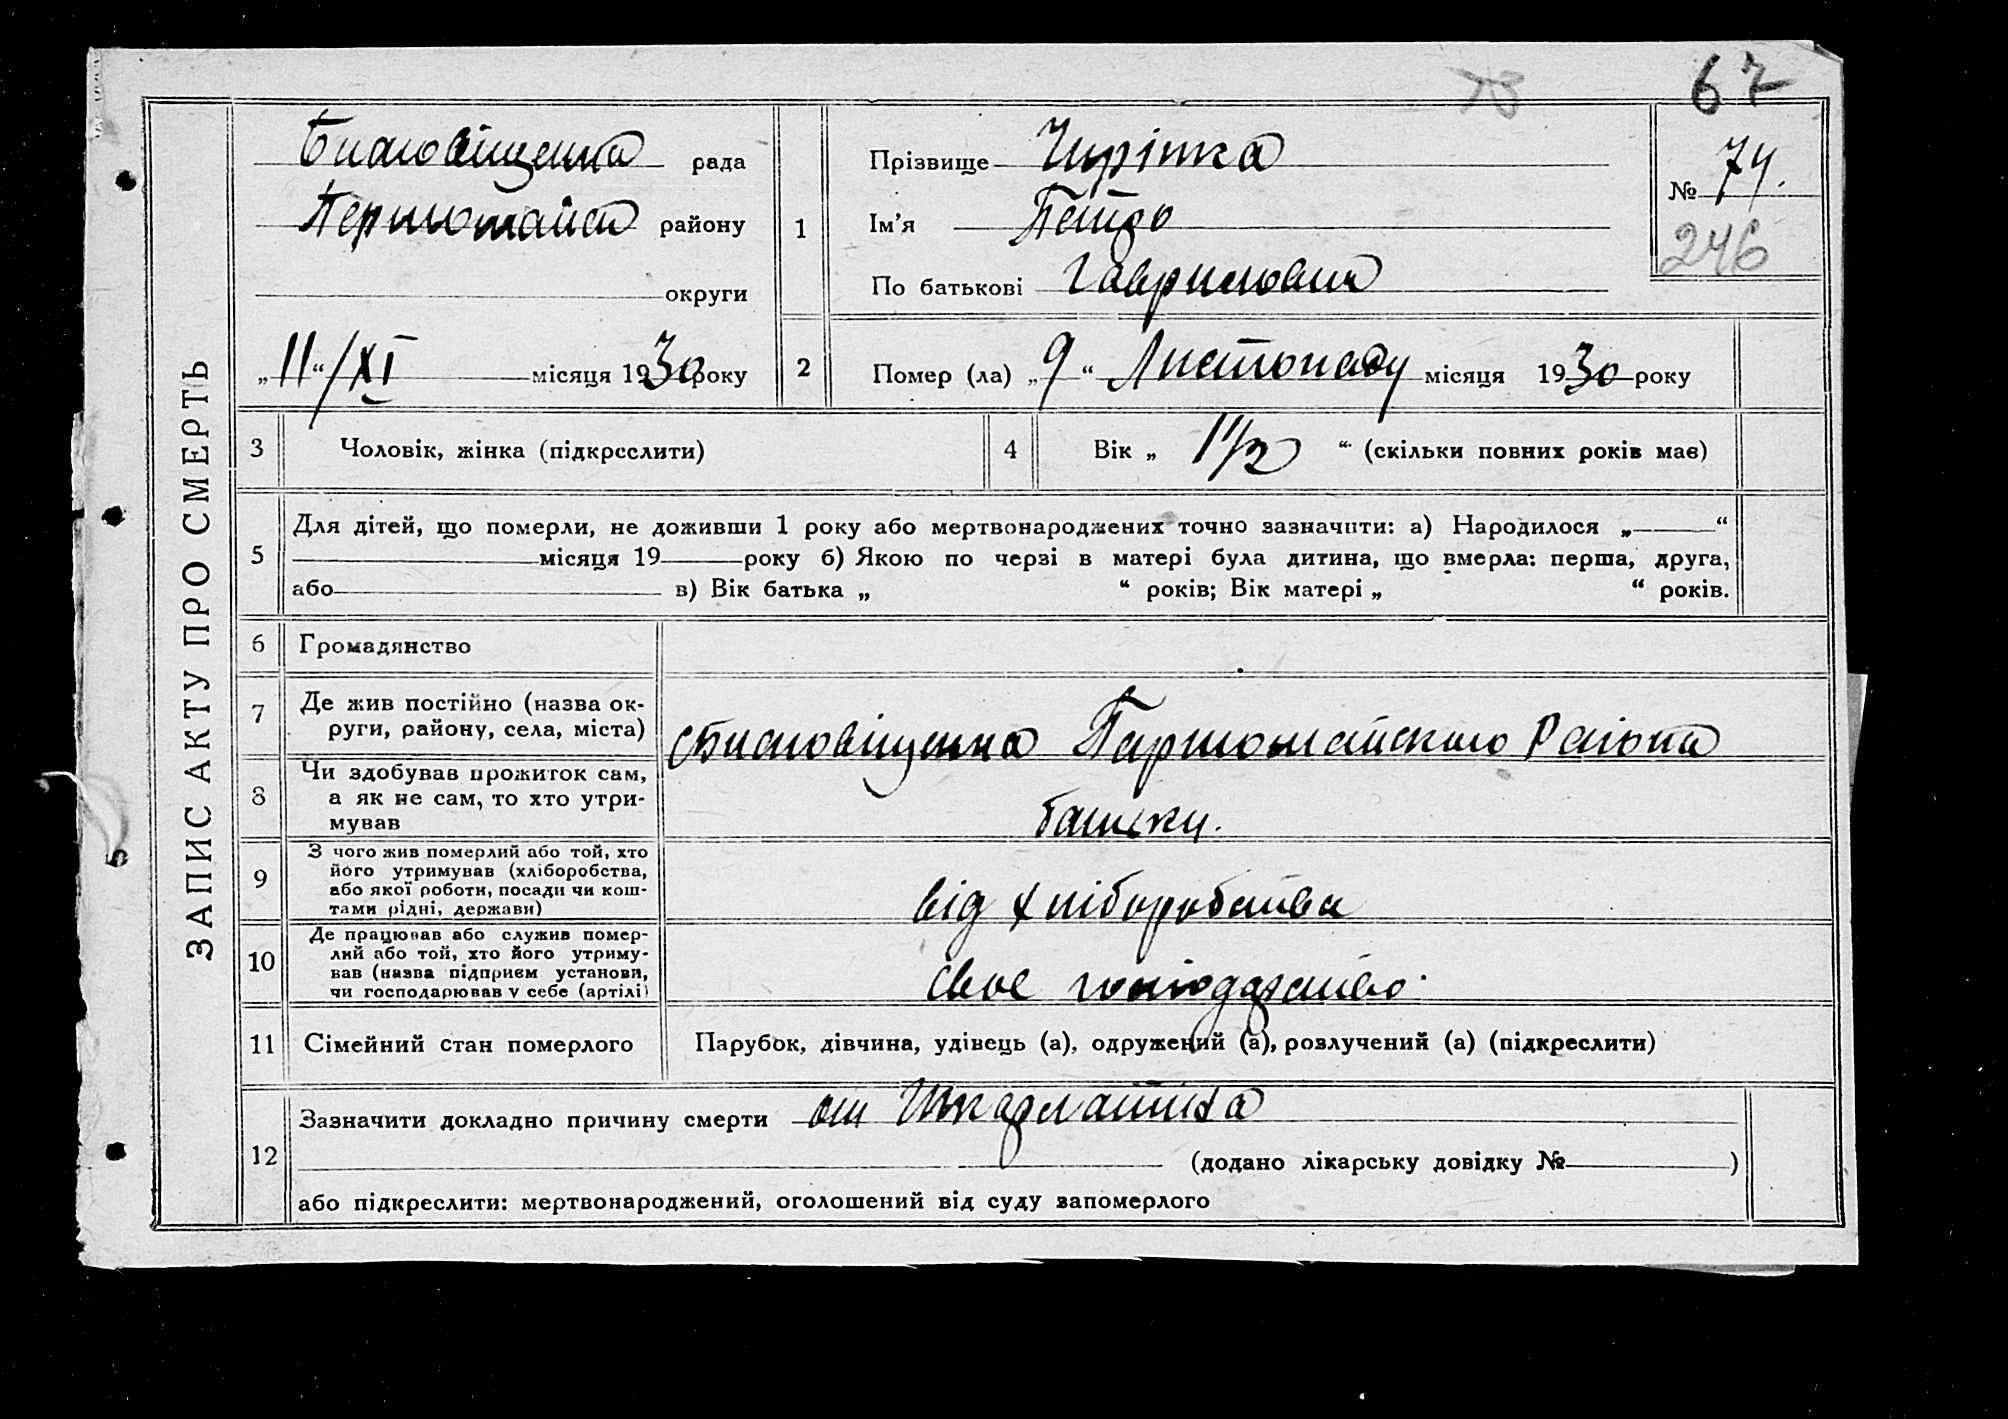 67
ЗАПИС АКТУ ПРО СМЕРТЬ
рада
району
округи
„11“/XI місяця 1930 року
1
Прізвище
Ім'я Петро
По батькові Гаврилович
№ 74.
246
2
Помер (ла) „9“ Листопаду місяця 1930 року
3
Чоловік, жінка (підкреслити)
4
Вік „ 1 1/2 “ (скільки повних років має)
5
Для дітей, що померли, не доживши 1 року або мертвонароджених точно зазначити: а) Народилося „ “
місяця 19 року б) Якою по черзі в матері була дитина, що вмерла: перша, друга,
або в) Вік батька „ “ років; Вік матері „ “ років.
6
Громадянство
7
Де жив постійно (назва ок-
руги, району, села, міста)
Первомайского Району
8
Чи здобував прожиток сам,
а як не сам, то хто утри-
мував
батьки.
9
З чого жив померлий або той, хто
його утримував (хліборобства,
або якої роботи, посади чи кош-
тами рідні, держави)
від хліборобства
10
Де працював або служив помер-
лий або той, хто його утриму-
вав (назва підприєм установи,
чи господарював у себе (артілі)
своє господарство.
11
Сімейний стан померлого
Парубок, дівчина, удівець (а), одружений (а), розлучений (а) (підкреслити)
12
Зазначити докладно причину смерти от Шкарлатина
(додано лікарську довідку № )
або підкреслити: мертвонароджений, оголошений від суду запомерлого